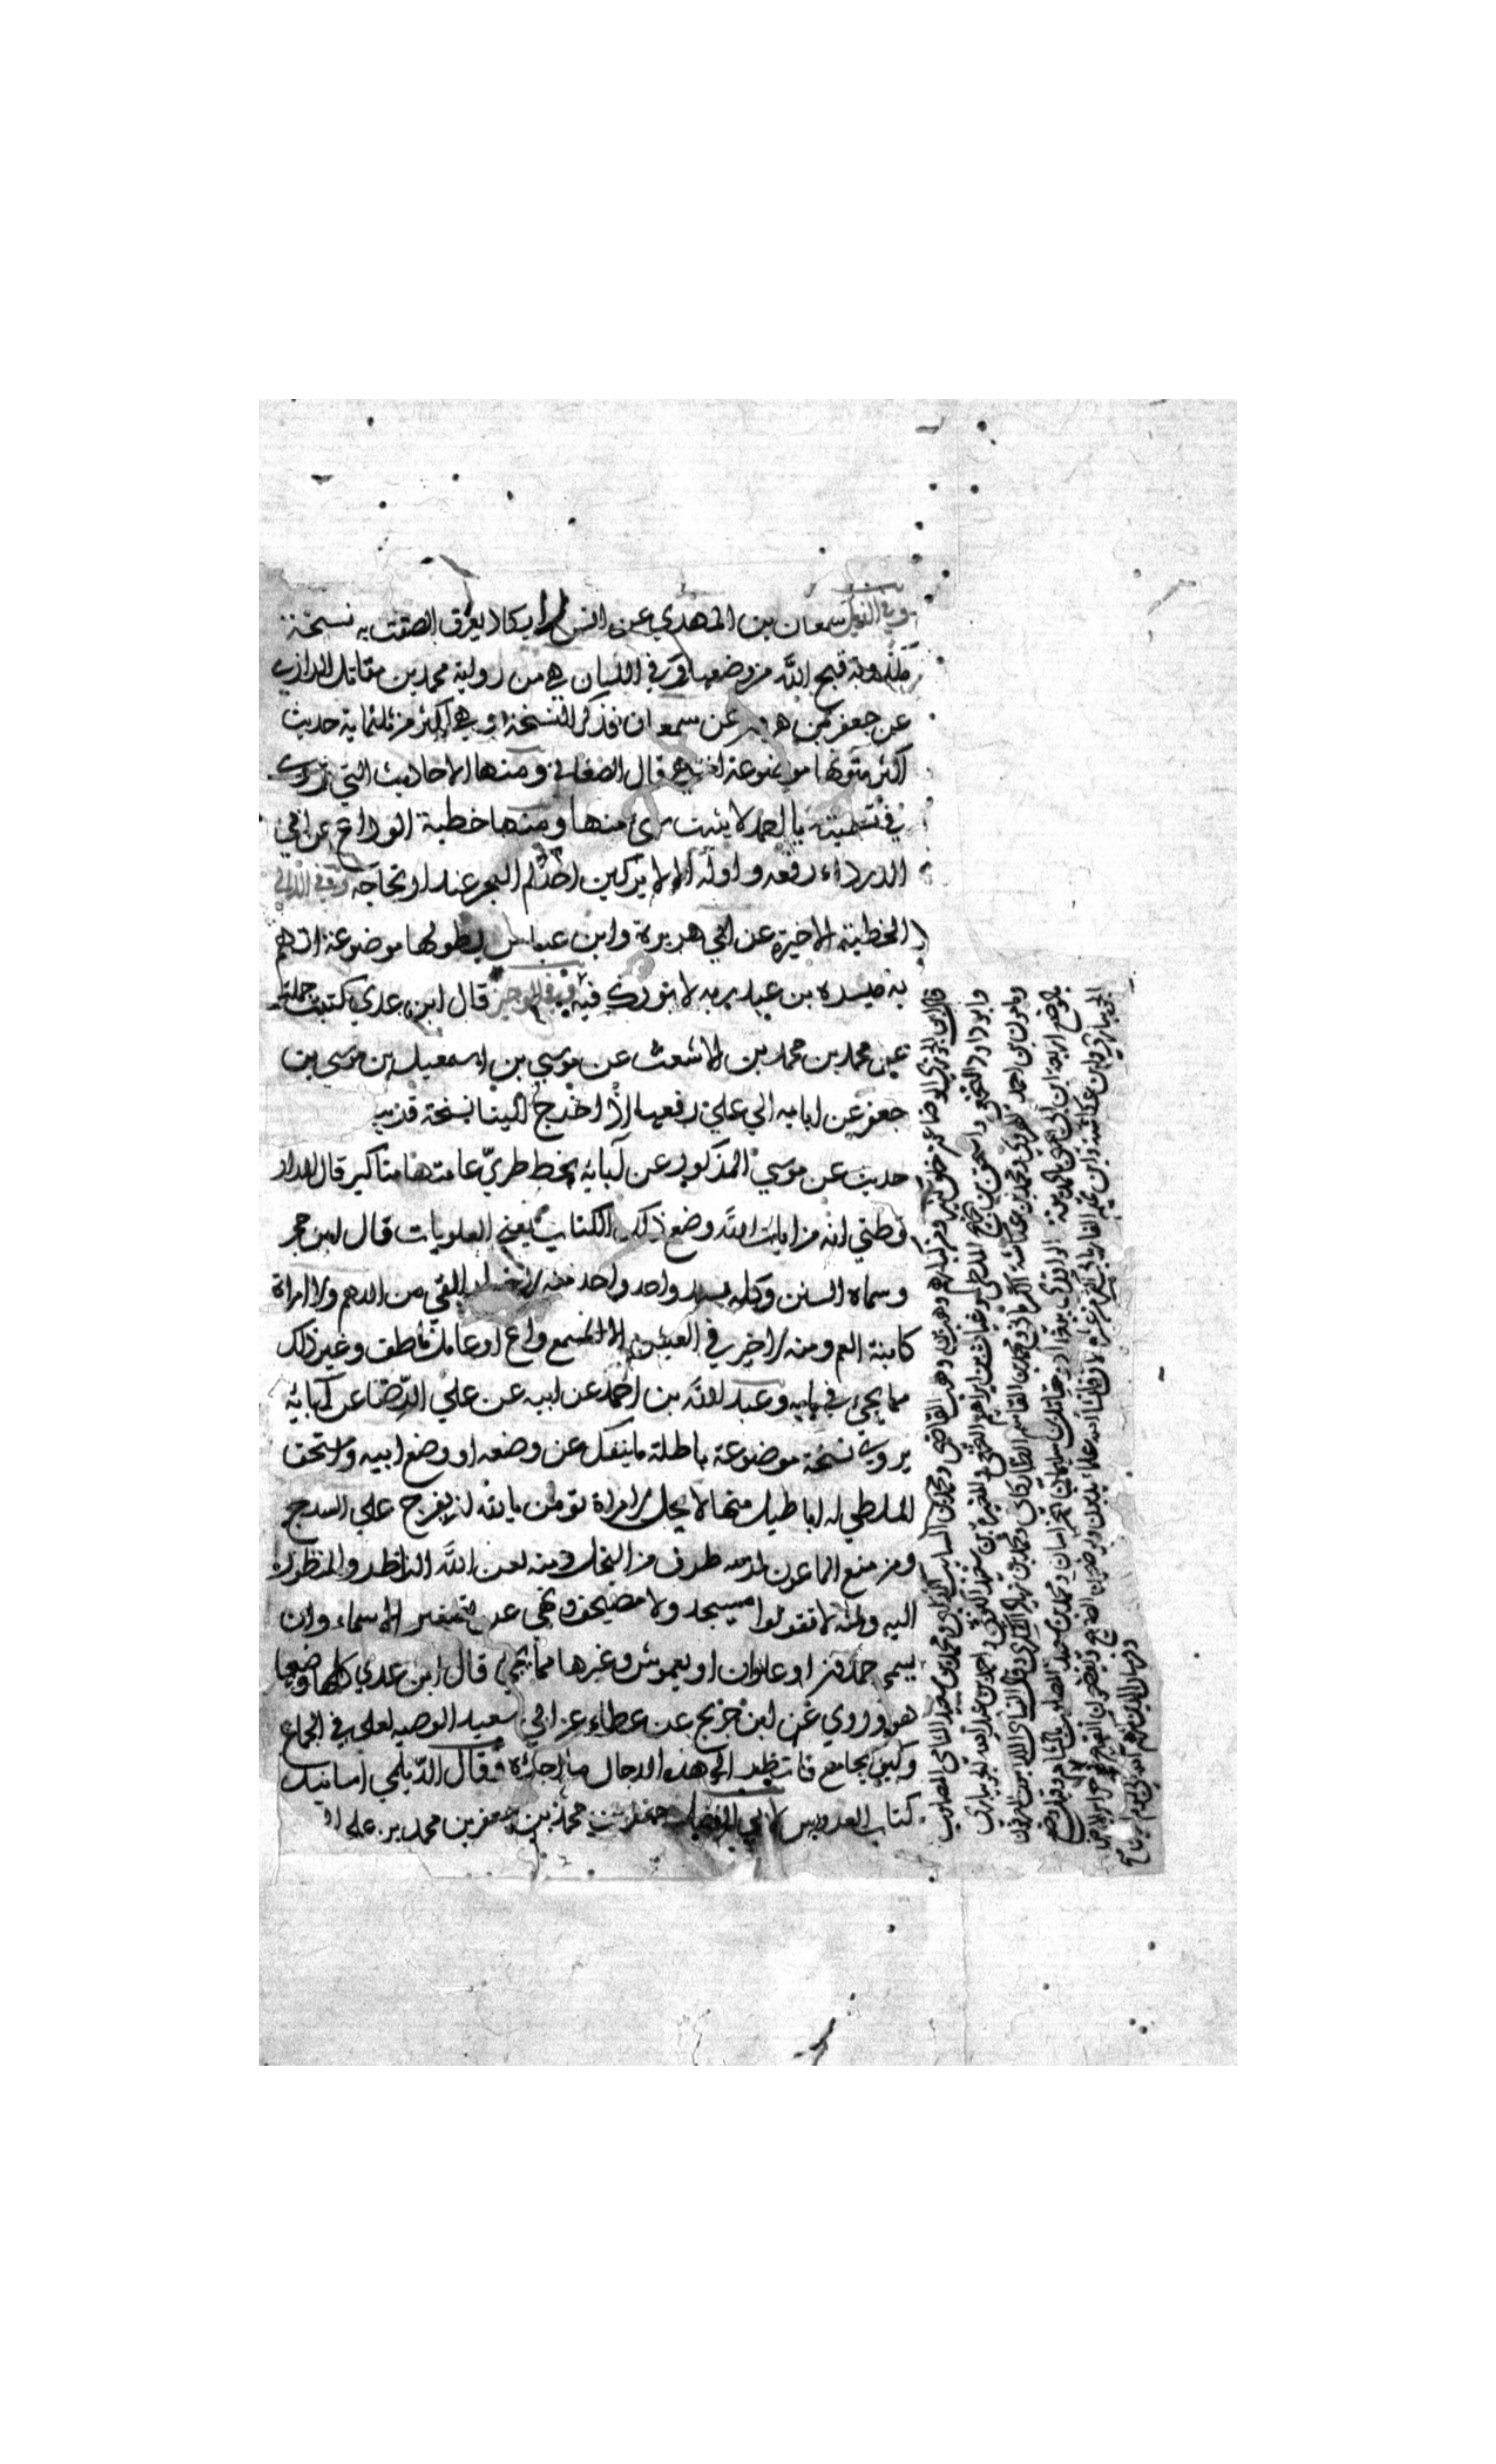 وفي الذيل سمعان بن المهدي عن انس لا يكاد يعرف الصقت به نسخة
مكذوبة قبح الله من وضعها وفي اللسان هي من رواية محمد بن مقاتل الرازي
عن جعفر بن هرون عن سمعان فذكر النسخة وهي اكثر من ثلثماية حديث
اكثر متونها موضوعة قال الصغاني ومنها الاحاديث التي تروى
في تسميته باحمد لا يثبت شيء منها ومنها خطبة الوداع عن ابي
الدرداء رفعه واوله الا لا يركبن احدكم البحر عند ارتجاجه وفي اللآلي
الخطبة الاخيرة عن ابي هريرة وابن عباس بطولها موضوعة اتهم
به ميسرة بن عبد ربه لا بورك فيه وفي الوجيز قال ابن عدي كتبت جملة
عن محمد بن محمد بن الاشعث عن موسي بن اسمعيل بن موسي بن
جعفر عن ابايه الي علي رفعها اذ اخرج الينا نسخة قريب
حديث عن موسي المذكور عن آبائه بخط طري عامتها مناكير قال الدار
قطني انه من ايات الله وضع ذلك الكتاب يعني العلويات قال ابن حجر
وسماه السنن وكله بسند واحد واحد منه لا خيل ابقي من الدهم ولا امراة
كابنة العم ومنه لا خير في العيش الا لمستمع واع او عالم ناطق وغير ذلك
مما يجيء في بابه وعبد الله بن احمد عن ابيه عن علي الرضا عن آبائه
يروي نسخة موضوعة باطلة ما ينفك عن وضعه او وضع ابيه واسحق
الملطي له اباطيل منها لا يحل لامراة تؤمن بالله ان تفرج علي السرج
ومن منع الماعون لزمه طرف من البخل ومنه لعن الله الناظر والمنظور
اليه ومنه لا تقولوا مسيجد ولا مصيحف ونهي عن تصغير الاسماء وان
يسمي حمدون او علوان او يعموش وغيرها مما يجيء قال ابن عدي كلها وضعها
هو وروي عن ابن جريج عن عطاء عن ابي سعيد الوصية لعلي في الجماع
وكيف يجامع فانظر الي هذا الدجال ما اجرأه وقال الديلمي اسانيد
كتاب العروس لابي الفضل جعفر بن محمد بن جعفر بن محمد بن علي
قال ابن الجوزي الوضاعون خلق كثير فمن كبارهم وهب بن وهب القاضي ومحمد بن السايب الكلبي ومحمد بن سعيد الشامي المصلوب
وابو داود النخعي واسحق بن نجيح الملطي وغياث بن ابراهيم النخعي والمغيرة بن سعيد الكوفي واحمد بن عبد الله الجويباري
ومامون بن احمد الهروي ومحمد بن عكاشة الكرماني ومحمد بن القاسم الطايكاني ومحمد بن زياد اليشكري وقال النسائي الكذابون المعروفون
بالوضع اربعة ابن ابي يحيى بالمدينة والواقدي ببغداد ومقاتل بن سليمان بخراسان ومحمد بن سعيد المصلوب بالشام وقيل وضع
الجويباري وابن عكاشة وابن تميم الفاريابي اكثر من عشرة الاف